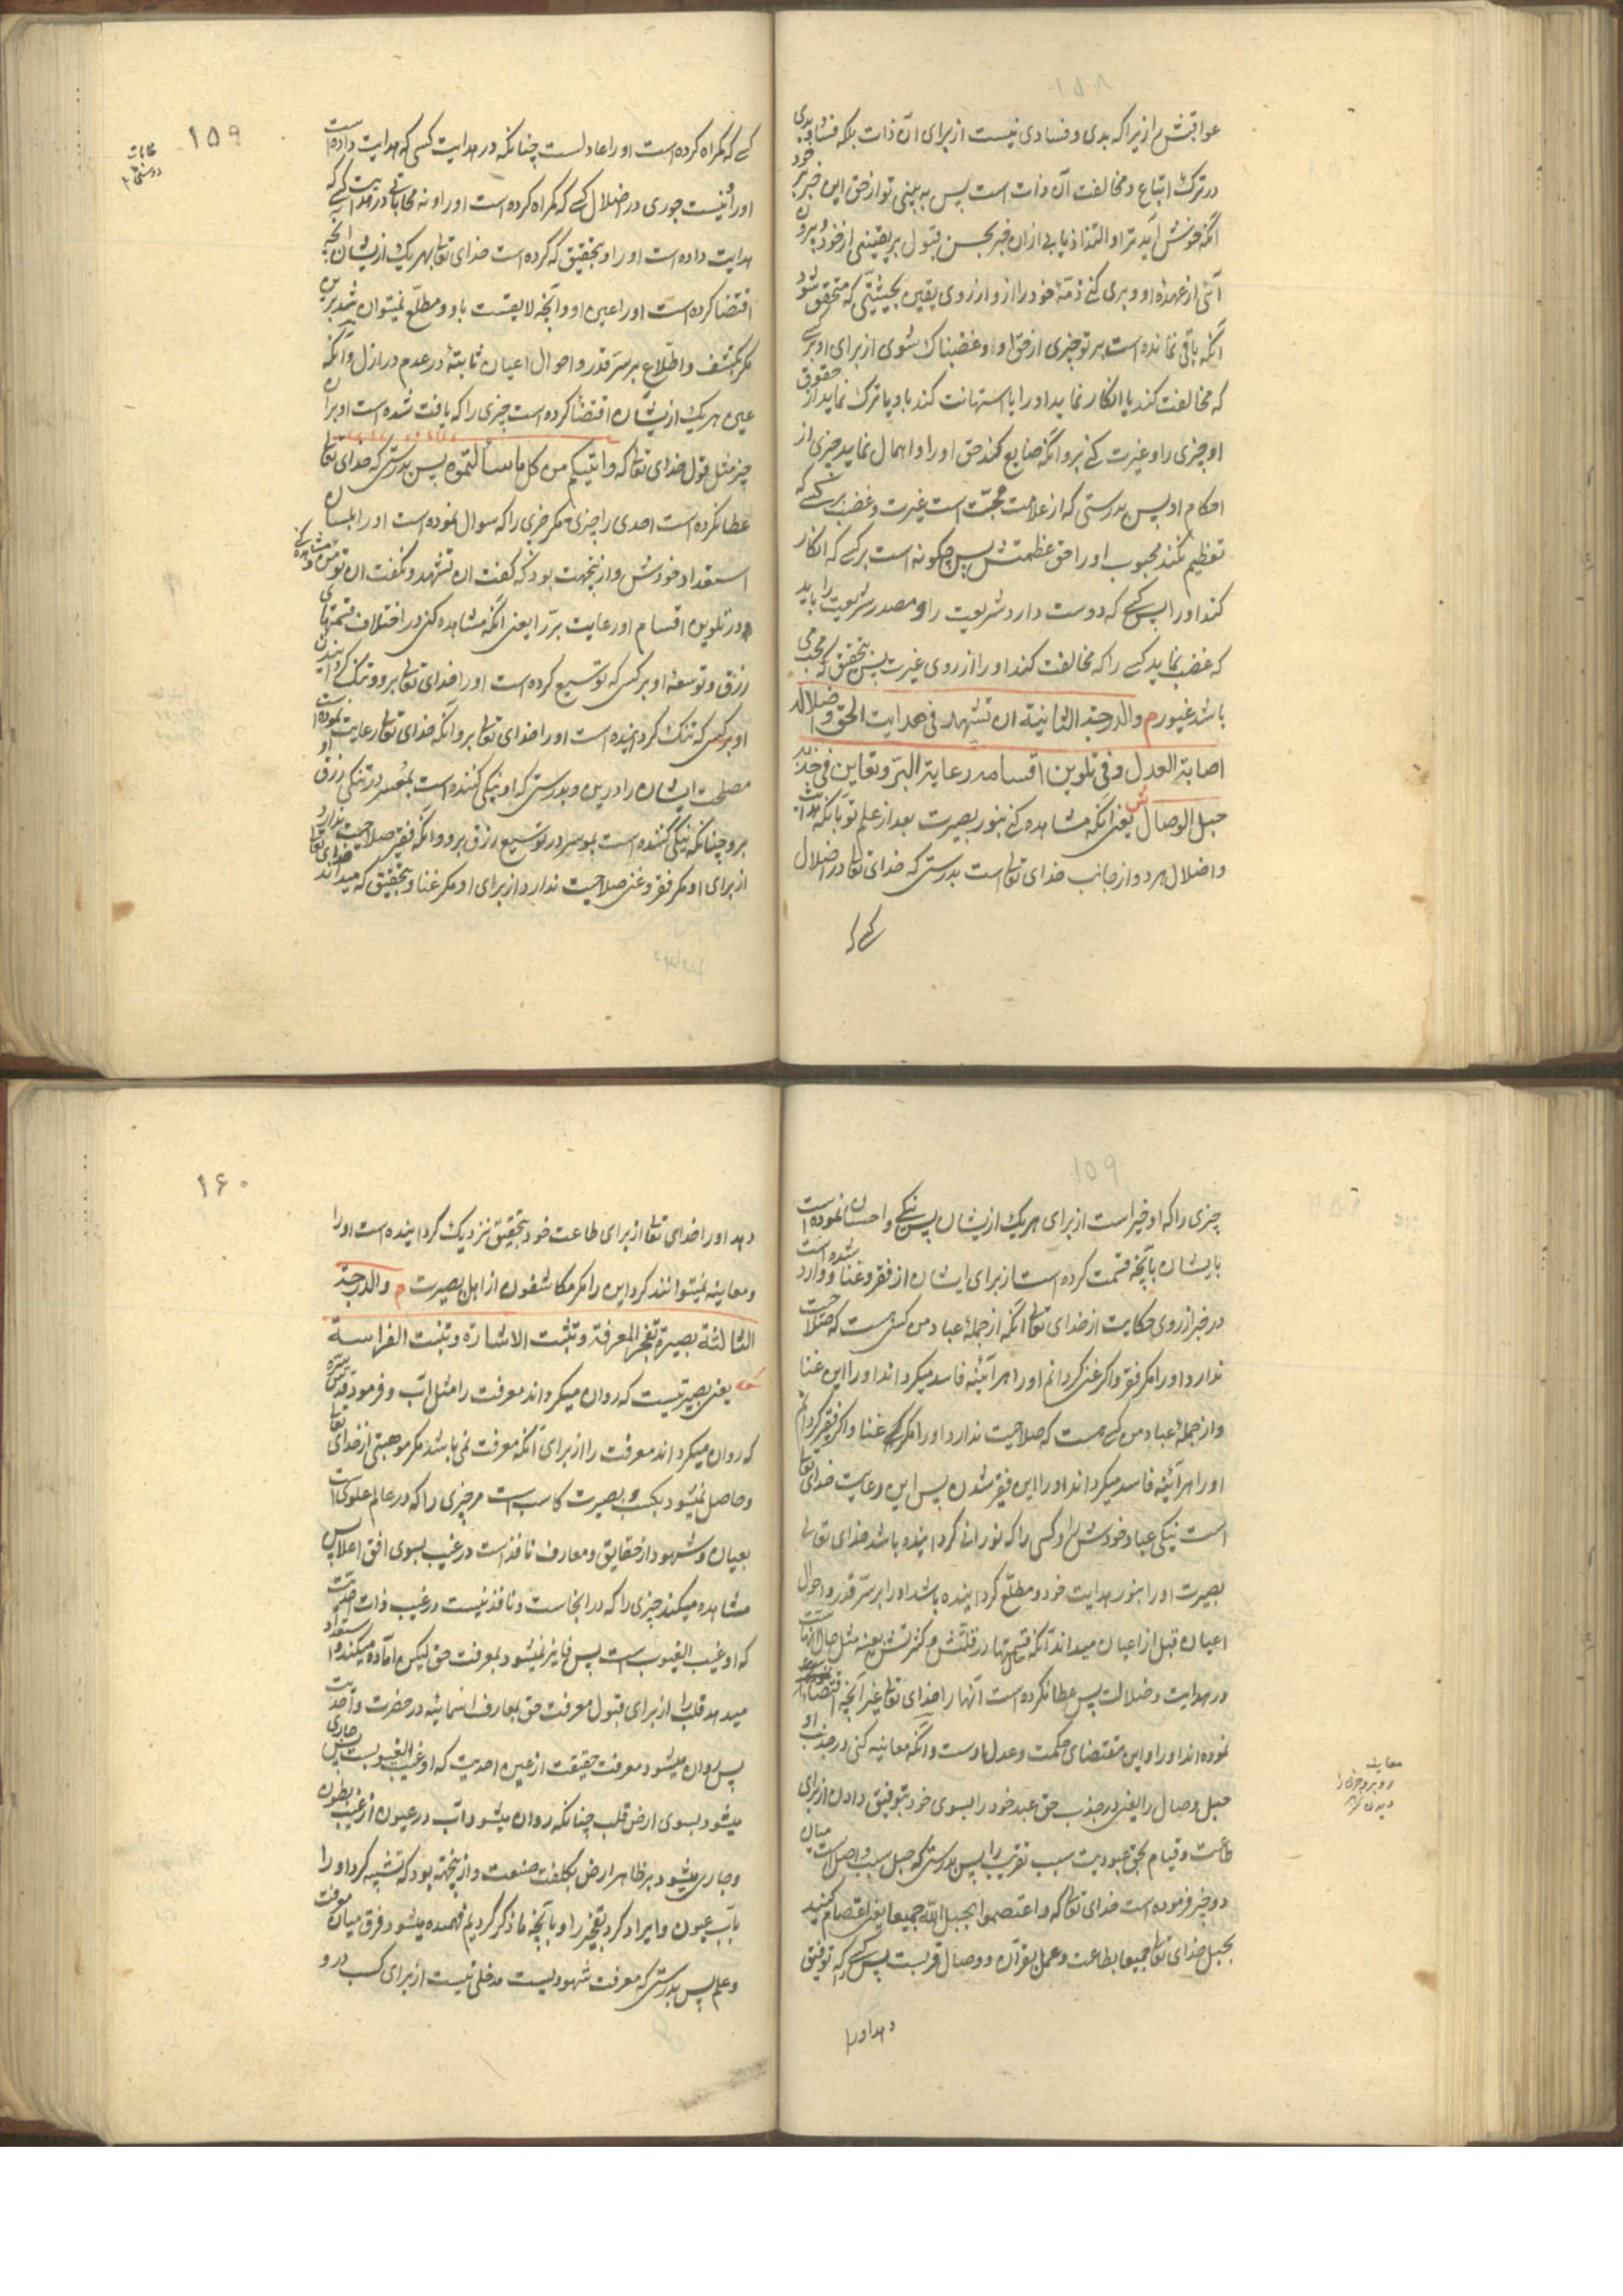 عواقبش را زیرا که بدی و فسادی نیست از برای آن ذات بلکه فساد و بدی
در ترک اتباع و مخالفت آن ذات است پس به بینی تو از حق این خبر بر خود
آنکه خوش آید ترا و التذاذ یابی از ان خبر بحسن قبول بر یقینی از خود و بیرون
آئی از عهده او و بری کنی ذمهٔ خود را از و از روی یقین بحیثیتی که متحقق شود
آنکه باقی نمانده است بر تو چیزی از حق او و غضبناک شوی از برای او بر کسی
که مخالفت کند یا انکار نماید او را یا استهانت کند باو یا ترک نماید از حقوق
او چیزی را و غیرت کنی بر و آنکه ضایع کند حق او را و اهمال نماید چیزی از
احکام او پس بدرستی که از علامت محبت است غیرت و غضب بر کسی که
تعظیم نکند محبوب او را حق عظمتش پس چگونه است بر کسی که انکار
کند او را پس کسی که دوست دارد شریعت را و مصدر شریعت را باید
که غضب نماید کسی را که مخالفت کند او را از روی غیرت پس بتحقیق که محب می
باشد غیور م والدرجة الثانیة ان تشهد فی هدایت الحق و اضلاله
اصابة العدل و فی تلوین اقسامه رعایة البر و تعاین فی جذبه
حبل الوصال ش یعنی آنکه مشاهده کنی بنور بصیرت بعد از علم تو بآنکه هدایت
و اضلال هر دو از جانب خدای تعالی است بدرستی که خدای تعالی در اضلال
کسی که
۱۵۹
کسی که گمراه کرده است او را عادلست چنانکه در هدایت کسی که هدایت داده است
او را و نیست جوری در اضلال کسی که گمراه کرده است او را و نه محاباتی در هدایت کسی که
هدایت داده است او را و بتحقیق که کرده است خدای تعالی بهر یک از یشان آنچه
اقتضا کرده است او را عین او و آنچه لایقست باو و مطلع نمیتوان شد برین
مگر بکشف و اطلاع بر سر قدر و احوال اعیان ثابتهٔ در عدم در ازل و آنکه
عین هر یک از یشان اقتضا کرده است چیزی را که یافت شده است او بران
چیز مثل قول خدای تعالی که و اتیکم من کل ما سألتموه پس بدرستی که خدای تعالی
عطا نکرده است احدی را چیزی مگر چیزی را که سوال نموده است او را بلسان
استعداد خودش و ازینجهت بود که گفت ان تشهد و نگفت ان تؤمن و مشاهده کنی
در تلوین اقسام او رعایت بر را یعنی آنکه مشاهده کنی در اختلاف قسمتهای
رزق و توسعهٔ او بر کسی که توسیع کرده است او را خدای تعالی بر و و تنگ گردانیدن
او بر کسی که تنگ گردانیده است او را خدای تعالی بر و آنکه خدای تعالی رعایت نموده است
مصلحت ایشان را درین و بدرستی که او نیکی کننده است بمعسر در تنگی رزق او
بر و چنانکه نیکی کننده است بموسر در توسیع رزق بر و و آنکه فقیر صلاحیت ندارد
از برای او مگر فقر و غنی صلاحیت ندارد از برای او مگر غنا و بتحقیق که میداند خدای تعالی
۱۵۹
چیزی را که او خیر است از برای هر یک از یشان پس نیکی و احسان نموده است
بایشان بآنچه قسمت کرده است از برای ایشان از فقر و غنا و وارد شده است
در خبر از روی حکایت از خدای تعالی آنکه از جملهٔ عباد من کسی هست که صلاحیت
ندارد او را مگر فقر و اگر غنی گردانم او را هر آئینه فاسد میگرداند او را این غنا
و از جملهٔ عباد من کسی هست که صلاحیت ندارد او را مگر غنا و اگر فقیر گردانم
او را هر آئینه فاسد میگرداند او را این فقیر شدن پس این رعایت خدای تعالی
است نیکی عباد خودش را و کسی را که نورانی گردانیده باشد خدای تعالی
بصیرت او را بنور هدایت خود و مطلع گردانیده باشد او را بر سر قدر و احوال
اعیان قبل از اعیان میداند آنکه قسمتها در قلتش و کثرتش بعینه مثل حال آنهاست
در هدایت و ضلالت پس عطا نکرده است آنها را خدای تعالی غیر آنچه اقتضا
نموده اند او را و این مقتضای حکمت و عدل اوست و آنکه معاینه کنی در جذب او
حبل وصال را یعنی در جذب حق عبد خود را بسوی خود بتوفیق دادن از برای
طاعت و قیام بحق عبودیت سبب تقریب را پس بدرستی که حبل سبب واصل است میان
دو چیز فرموده است خدای تعالی که و اعتصموا بحبل الله جمیعا یعنی اعتصام کنید
بحبل خدای تعالی جمیعا بطاعت و عمل بقرآن و وصال قربست پس کسی را که توفیق
دهد او را
معاینه
روبرو چیزی را
دیدن
۱۶۰
دهد او را خدای تعالی از برای طاعت خود بتحقیق نزدیک گردانیده است او را
و معاینه نمیتوانند کرد این را مگر مکاشفون از اهل بصیرت م والدرجة
الثالثة بصیرة تفجر المعرفة و تثبت الاشارة و تنبت الفراسة
ش یعنی بصیرتیست که روان میگرداند معرفت را مثل آب و فرمود قدس سره
که روان میگرداند معرفت را از برای آنکه معرفت نمی باشد مگر موهبتی از خدای تعالی
و حاصل نمیشود بکسب و بصیرت کاسب است مر چیزی را که در عالم علوی است
بعیان و شهود از حقایق و معارف نافذ است در غیب بسوی افق اعلا پس
مشاهده میکند چیزی را که در انجاست و نافذ نیست در غیب ذات احدیت
که او غیب الغیوب است پس فایز نمیشود بمعرفت حق لیکن آماده میکند و استعداد
میدهد قلب را از برای قبول معرفت حق بمعارف اسمائیه در حضرت واحدیت
پس روان میشود معرفت حقیقت از عین احدیت که او غیب الغیوبست پس جاری
میشود بسوی ارض قلب چنانکه روان میشود آب در عیون از غیب بطون
و جاری میشود بر ظاهر ارض بکلفت صنعت و ازینجهت بود که تشبیه کرد او را
بآب عیون و ایراد کرد تفجر را و بآنچه ما ذکر کردیم فهمیده میشود فرق میان معرفت
و علم پس بدرستی که معرفت شهودیست مدخلی نیست از برای کسب در و